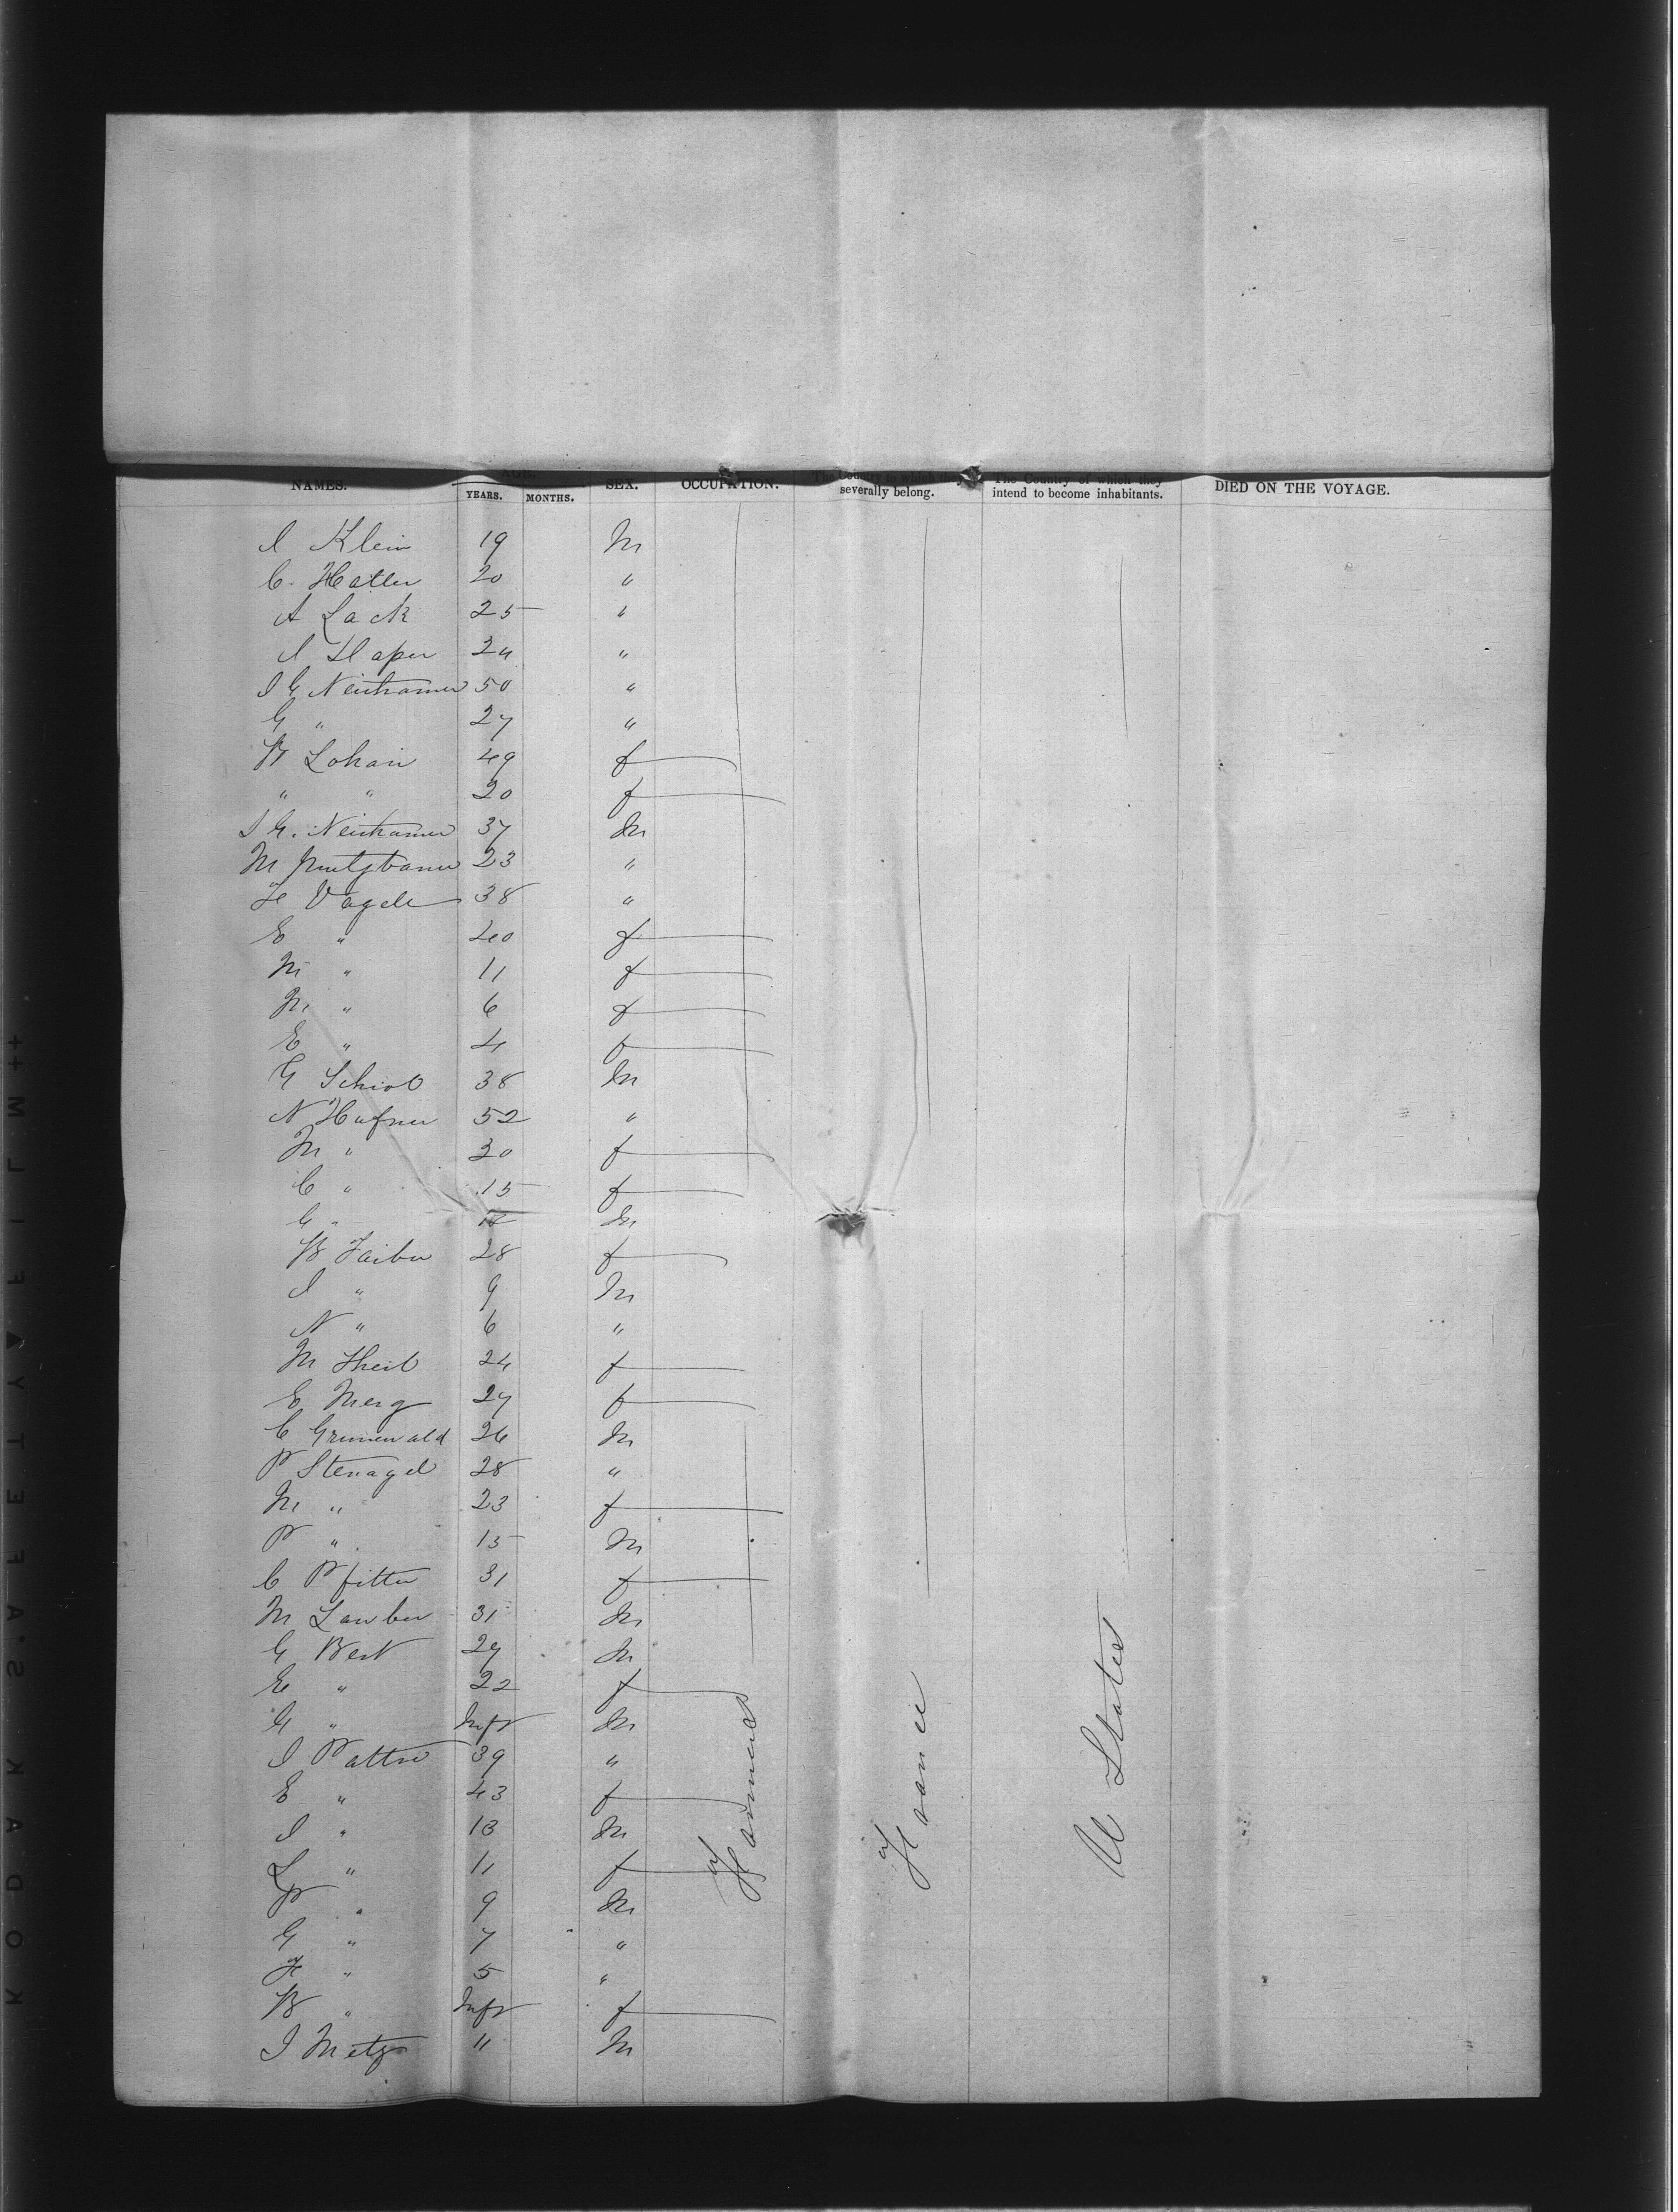 NAMES. AGE. YEARS. MONTHS. SEX. OCCUPATION. The Country to which they severally belong. The Country of which they intend to become inhabitants. DIED ON THE VOYAGE.
I Klein 19 M
C. Haller 20 "
A Lack 25 "
I Haper 24 "
I G Neuhamer 50 "
G " 27 "
B Lohain 49 f
" " 20 f
I G. Neuhamer 37 M
M 23 "
F Vagele 38 "
E " 40 f
M " 11 f
M " 6 f
E " 4 f
G Schiol 38 M
N Hafner 52 "
M " 30 f
C " 15 f
G " M
B Faiber 28 f
I " 9 M
N " 6 "
M Theil 24 f
E Merg 27 f
C Grunewald 26 M
P Stenagel 28 "
M " 23 f
P " 15 M
C Pfitter 31 f
M Lauber 31 M
G Best 29 M
E " 22 f
G " Inft M
I Pattre 39 "
E " 43 f
I " 13 M
L " 11 f
P " 9 M
G " 7 "
F " 5 "
B " Inft f
I Metz 11 M
U States